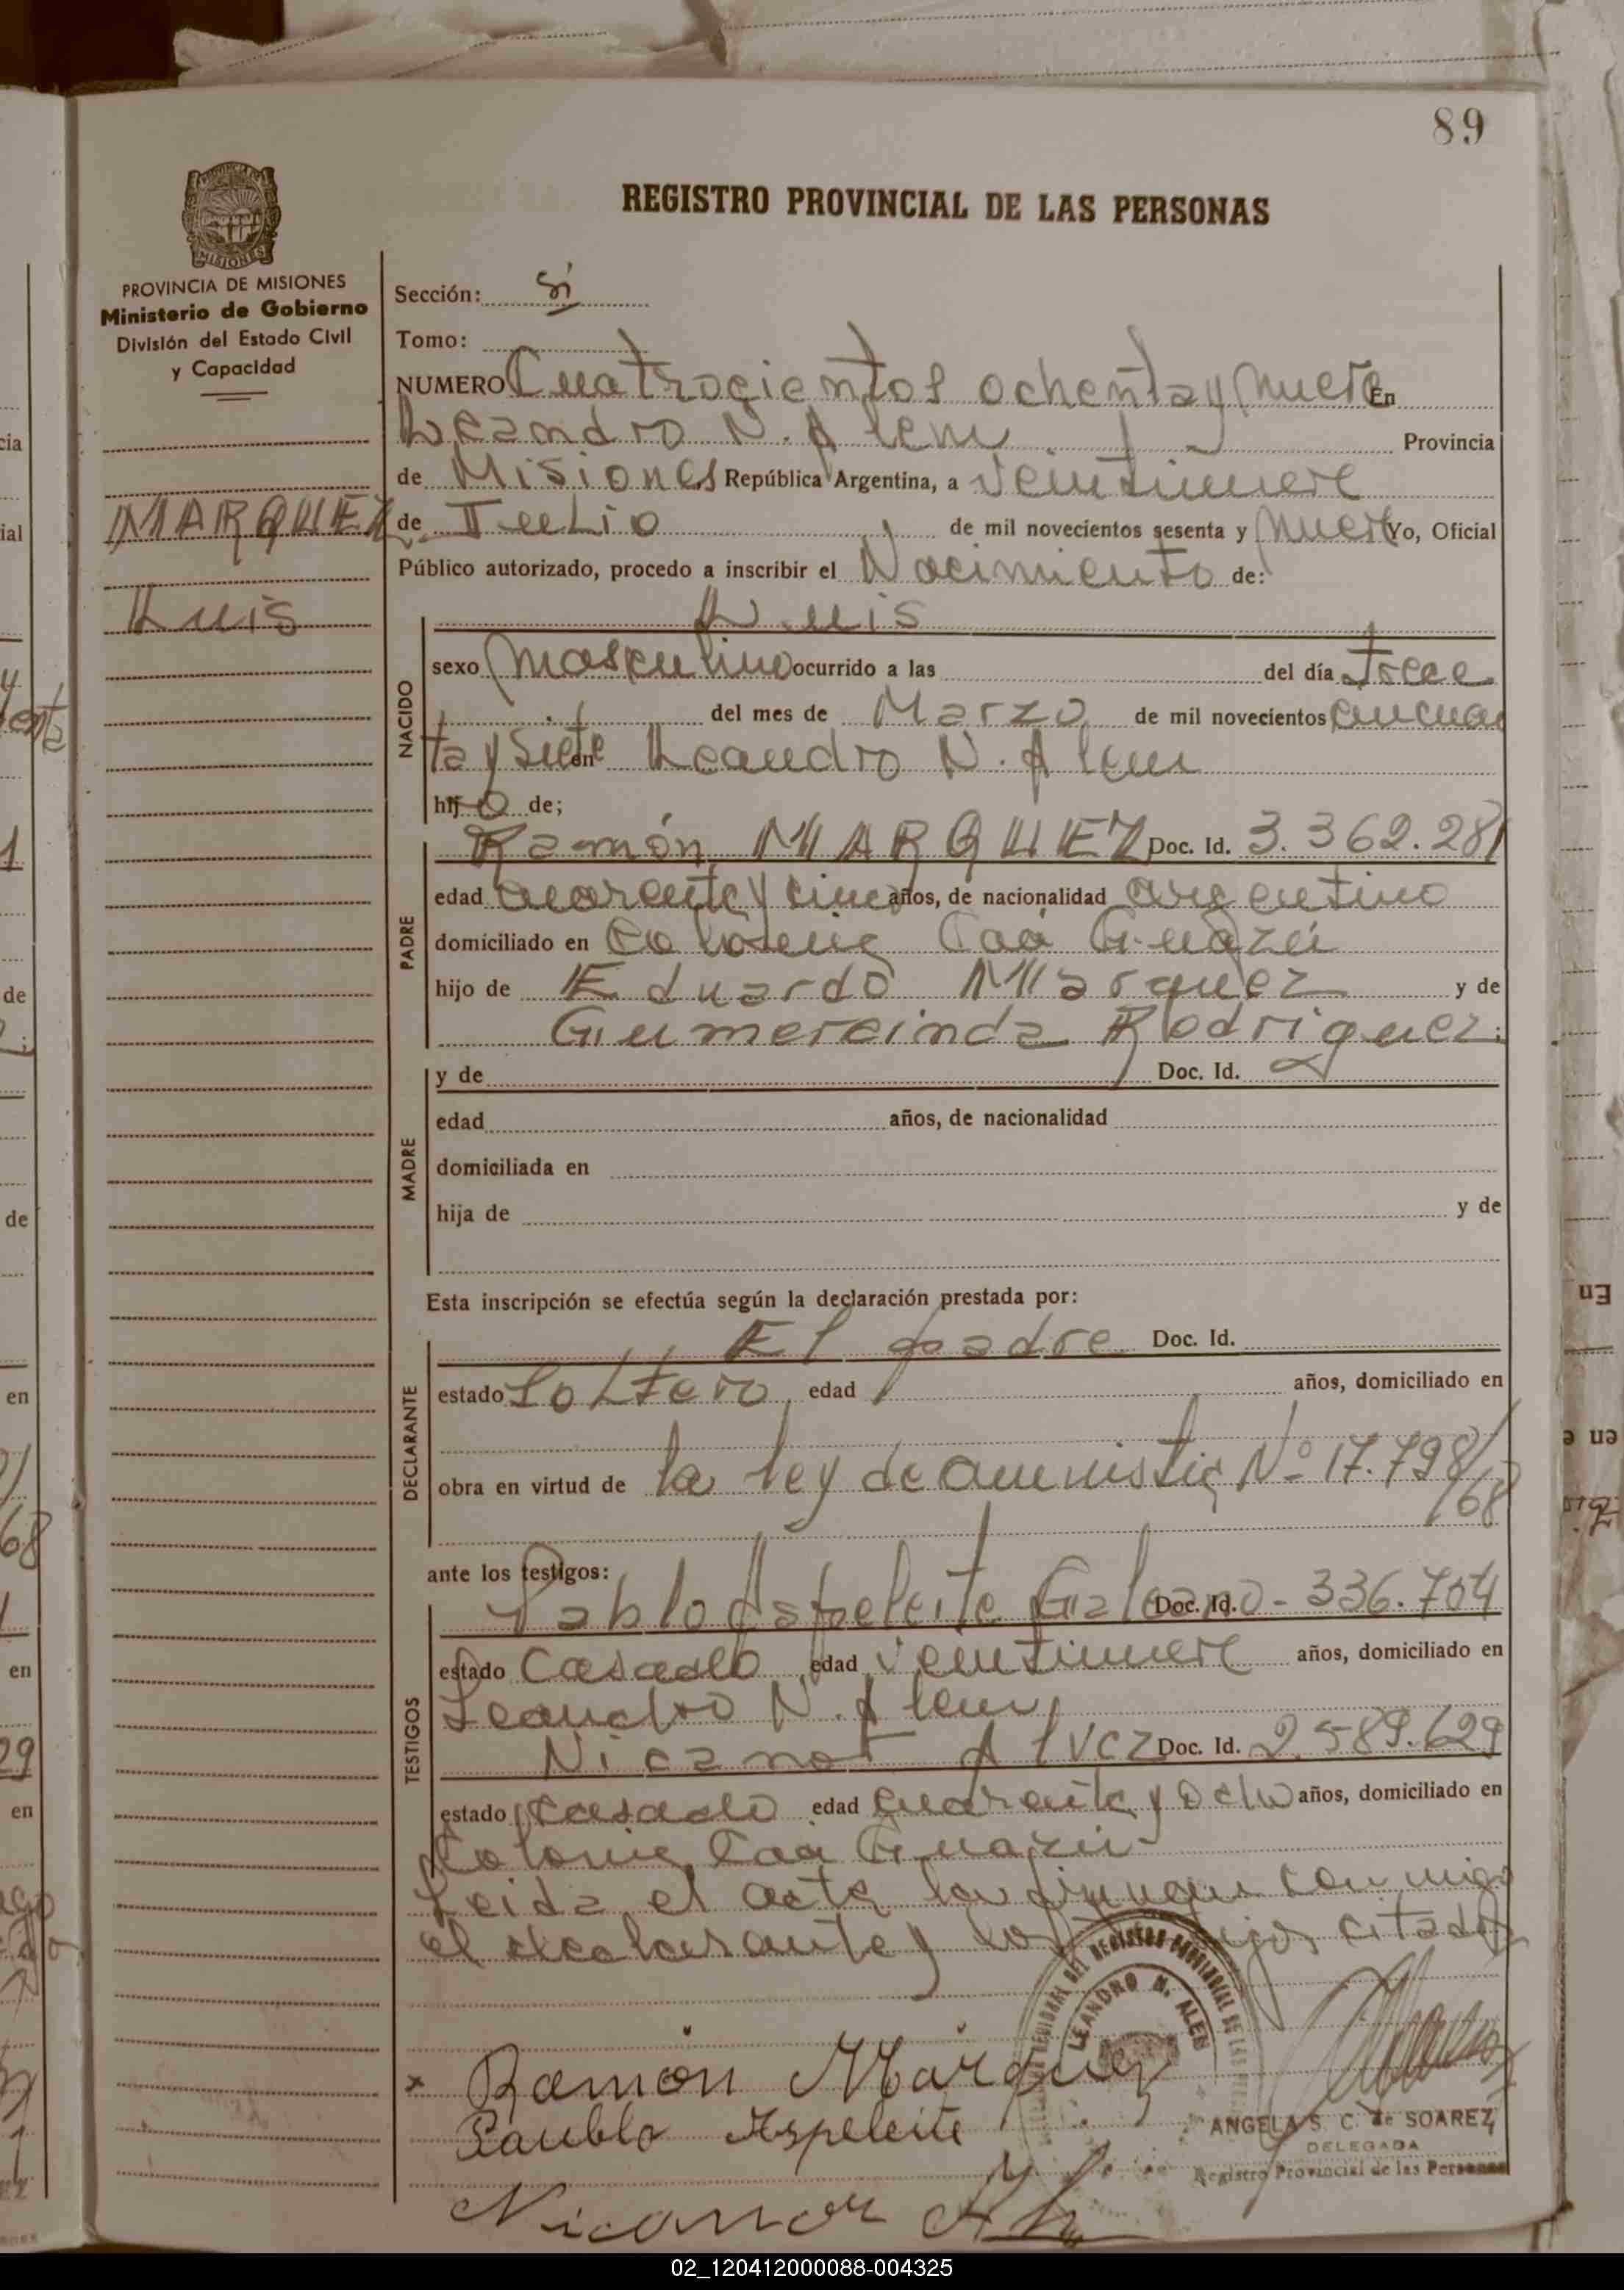 89
REGISTRO PROVINCIAL DE LAS PERSONAS
PROVINCIA DE MISIONES
Ministerio de Gobierno
División del Estado Civil
y Capacidad
MARQUEZ
Luis
Sección:
Tomo:
NUMERO Cuatrocientos ochenta y nueve En
Leandro N. Alem Provincia
de Misiones República Argentina, a veintinueve
de Julio de mil novecientos sesenta y nueve Yo, Oficial
Público autorizado, procedo a inscribir el Nacimiento de:
Luis
NACIDO
sexo masculino ocurrido a las del día trece
del mes de Marzo de mil novecientos cincuen
ta y siete en Leandro N. Alem
hijo de;
PADRE
Ramón MARQUEZ Doc. Id. 3.362.281
edad cuarenta y cinco años, de nacionalidad argentino
domiciliado en Colonia Caá Guazú
hijo de Eduardo Marquez y de
Gumercinda Rodriguez.
MADRE
y de Doc. Id.
edad años, de nacionalidad
domiciliada en
hija de y de
Esta inscripción se efectúa según la declaración prestada por:
DECLARANTE
El padre Doc. Id.
estado soltero edad años, domiciliado en
obra en virtud de la ley de amnistia Nº 17.798/
/68
ante los testigos:
TESTIGOS
Pablo Aspeleite Galeano Doc. Id. - 336.704
estado casado edad veintinueve años, domiciliado en
Leandro N. Alem
Nicanor Alvez Doc. Id. 2.589.629
estado casado edad cuarenta y ocho años, domiciliado en
Colonia Caá Guazú
Leida el acta la firman conmigo
el declarante y los testigos citados
REGISTRO PROVINCIAL DE LAS
LEANDRO N. ALEM
x Ramón Márquez
Paublo Aspeleite
Nicanor
ANGELA S. C. de SOAREZ
DELEGADA
Registro Provincial de las Personas
02_120412000088-004325